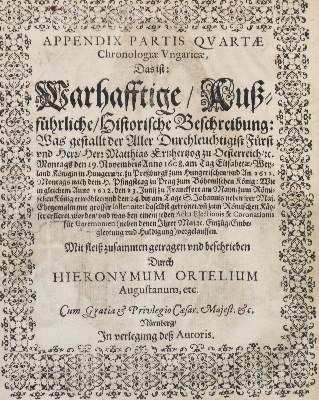 APPENDIX PARTIS QVARTÆ
Chronologiæ Vngaricæ,
Das ist:
Warhafftige/ Auß-
führliche/ Historische Beschreibung:
Was gestallt der Aller Durchleuchtigist Fürst
vnd Herr/ Herr Matthias Ertzhertzog zu Oesterreich/ ꝛc.
Montags den 19. Novembris Anno 1608. am Tag Elisabetæ/ Wey-
land Königin in Hungern/ ꝛc. in Preßburg zum Hungerischen vnd An. 1611.
Montags nach dem H. Pfingstag zu Prag zum Böheimischen König: Wie
in gleichem Anno 1612. den 13. Junij in Franckfort am Mayn zum Römi-
schen König erwöhlet vnd den 24. hujus am Tage S. Johannis neben jrer Mai.
Ehegemahl mit grosser solennitet daselbst gekrönet vnd zum Römischen Käy-
ser erklert worden/ vnd was bey einem jeden Actu Electionis & Coronationis
für Ceremonien (neben denen jhrer Maiꝛc. Einzüg/ Einbe-
gleytung vnd Huldigung) vorgelauffen.
Mit fleiß zusammen getragen vnd beschrieben
Durch
HIERONYMUM ORTELIUM
Augustanum, etc.
Cum Gratia & Privilegio Cæsar. Majest. &c.
Nürnberg/
In verlegung deß Autoris.